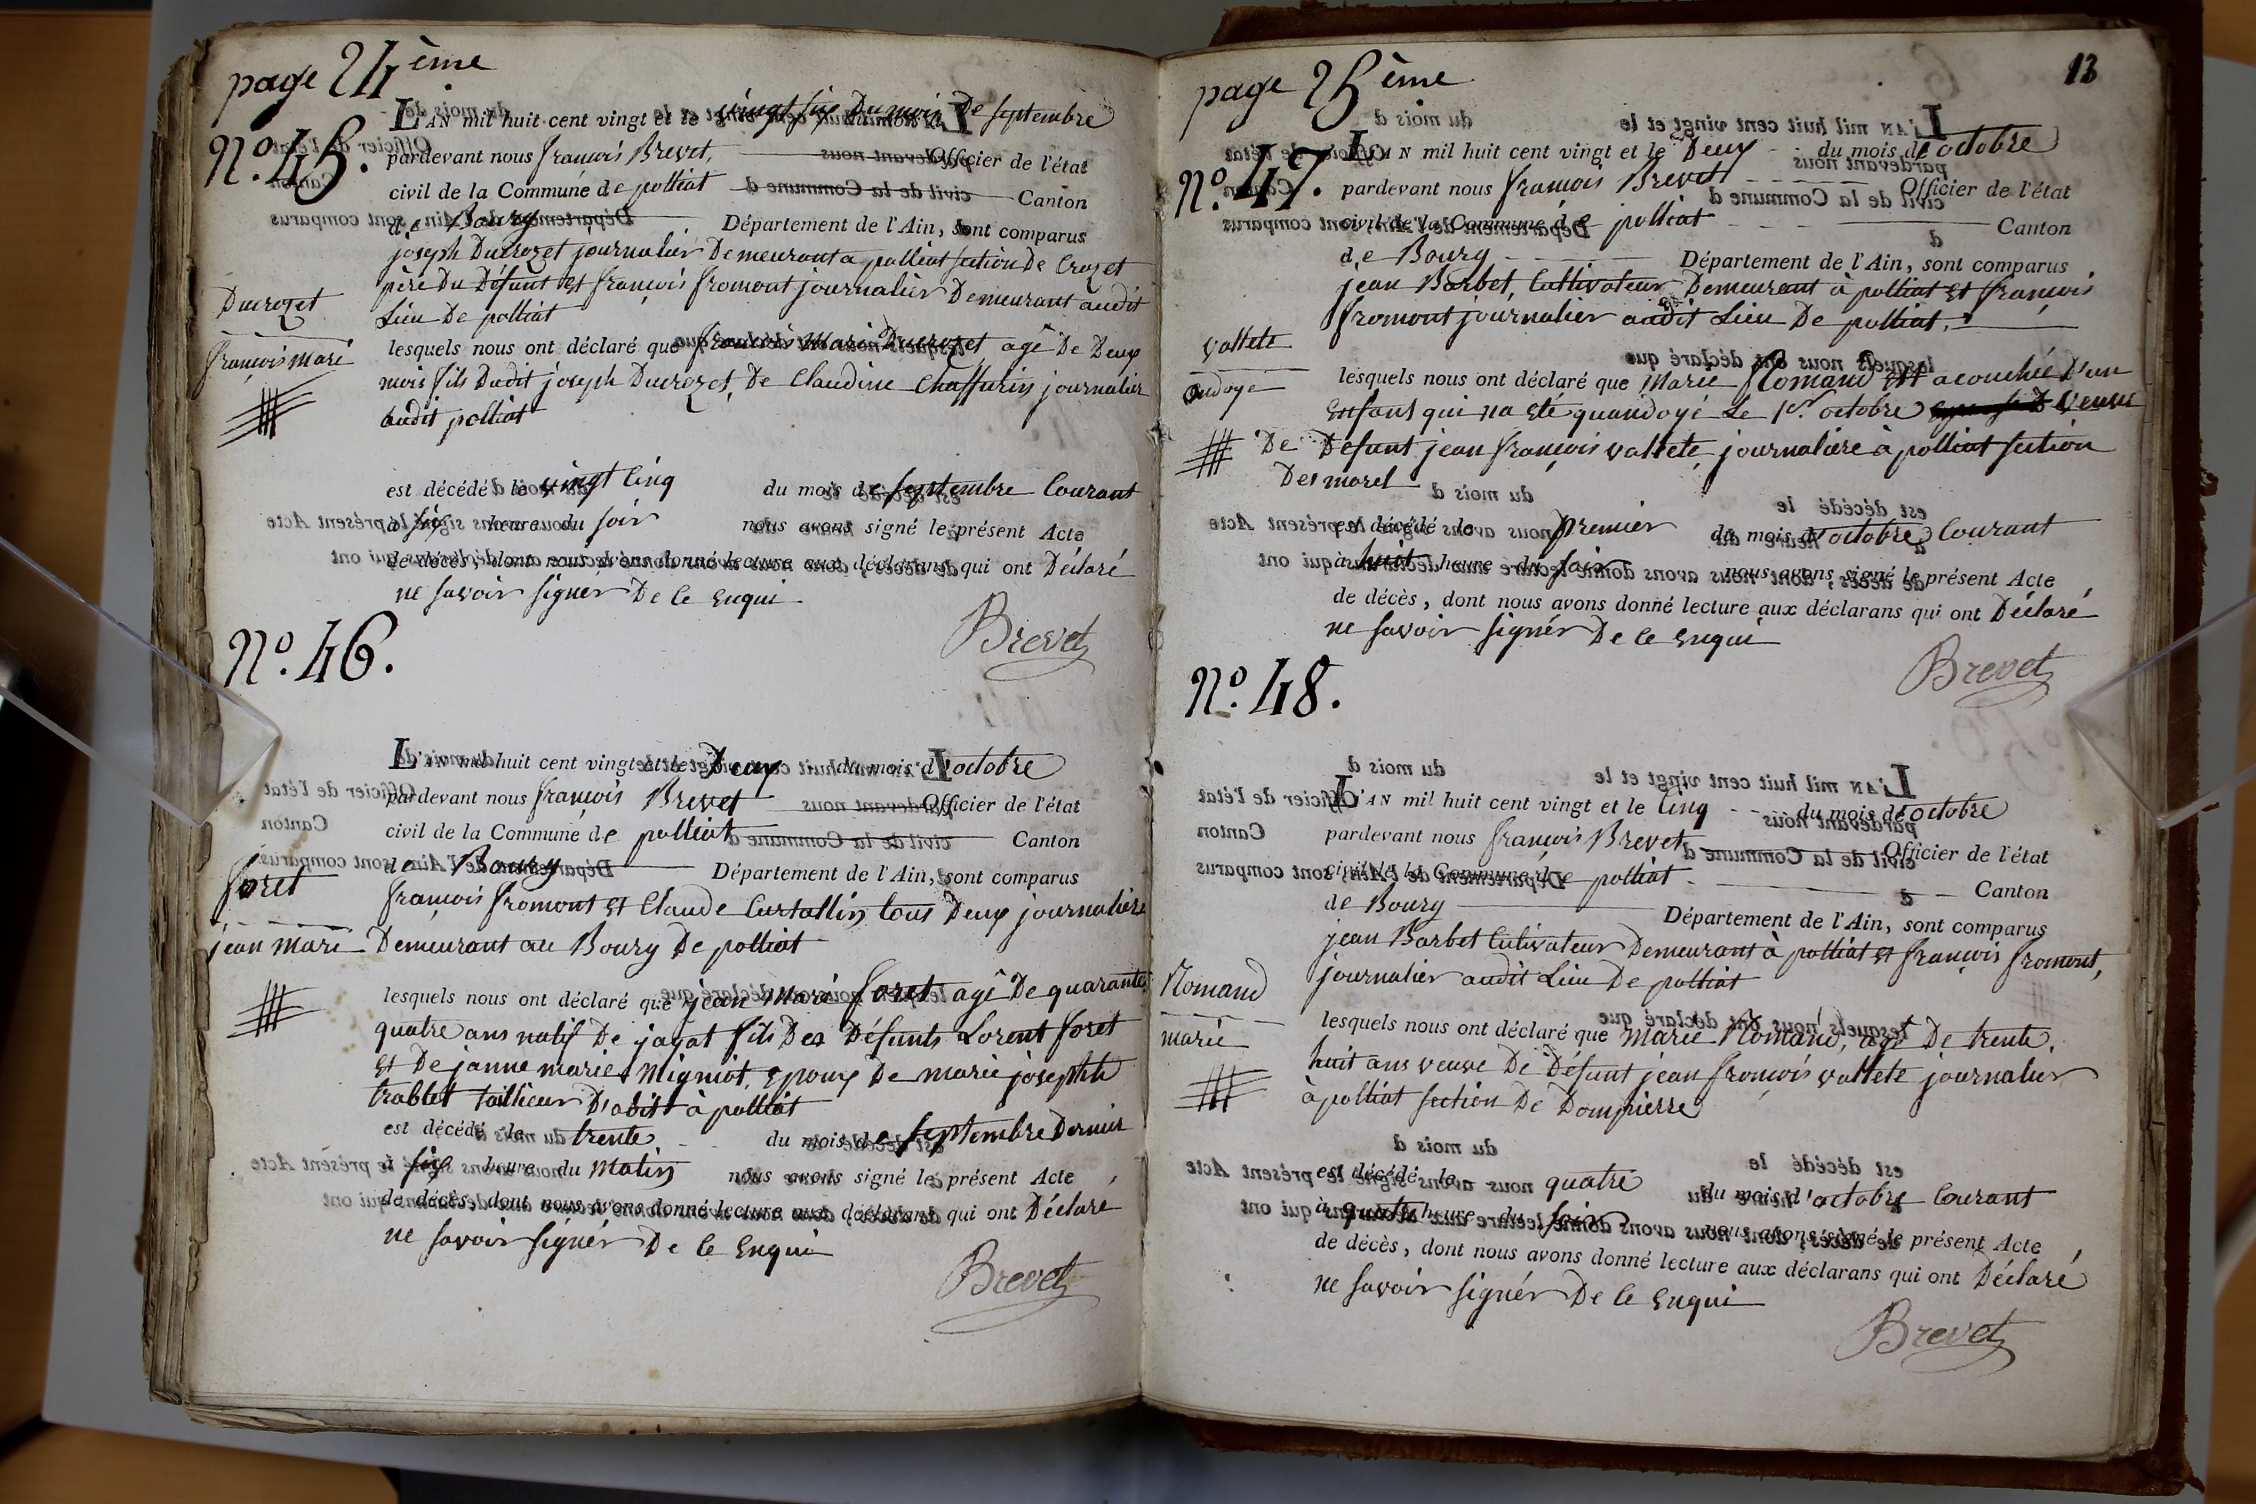 page 24ème
N.º 45.
L'AN mil huit cent vingt et le vingt six Du mois De septembre
pardevant nous françois Brevet, Officier de l'état
civil de la Commune de polliat Canton
de Bourg Département de l'Ain, sont comparus
joseph Ducrozet journalier Demeurant a polliat section De Crozet
père Du Défunt et françois fromont journalier Demeurant audit
Lieu De polliat
Ducrozet
françois marie
lesquels nous ont déclaré que françois marie Ducrozet agé De Deux
mois fils Dudit joseph Ducrozet, De Claudine Chaffurin journalier
audit polliat
est décédé le vingt Cinq du mois de septembre Courant
à six heure du soir nous avons signé le présent Acte
de décès, dont nous avons donné lecture aux déclarans qui ont Déclaré
ne savoir signér De Ce Enqui
Brevet
N.º 46.
L'AN mil huit cent vingt et le Deux du mois d'octobre
pardevant nous françois Brevet Officier de l'état
civil de la Commune de polliat Canton
de Bourg Département de l'Ain, sont comparus
foret
jean marie
françois fromont et Claude Curtallin tous Deux journaliere
Demeurant au Bourg De polliat
lesquels nous ont déclaré que jean marie foret agé De quarante
quatre ans natif De jayat fils Des Défunts Lorent foret
Et De janne marie Migniot, Epoux De marie josephte
trablet tailleur D'abit à polliat
est décédé le trente du mois de septembre Dernier
à six heure du Matin nous avons signé le présent Acte
de décès, dont nous avons donné lecture aux déclarans qui ont Déclaré
ne savoir signér De Ce Enqui
Brevet
page 25ème
13
N.º 47.
L'AN mil huit cent vingt et le Deux du mois de octobre
pardevant nous françois Brevet Officier de l'état
civil de la Commune de polliat Canton
de Bourg Département de l'Ain, sont comparus
jean Barbet, Cultivateur Demeurant à polliat et françois
fromont journalier audit Lieu De polliat,
vallete
ondoye
lesquels nous ont déclaré que Marie Romand est acouchée D'un
Enfant qui na été quandoyé Le 1er octobre veuve
De Défunt jean françois vallete, journaliere à polliat section
Des morel
est décédé le premier du mois d'octobre Courant
à huit heure du soir nous avons signé le présent Acte
de décès, dont nous avons donné lecture aux déclarans qui ont Déclaré
ne savoir signér De Ce Enqui
Brevet
N.º 48.
L'AN mil huit cent vingt et le Cinq du mois de octobre
pardevant nous françois Brevet Officier de l'état
civil de la Commune de polliat Canton
de Bourg Département de l'Ain, sont comparus
jean Barbet Cultivateur Demeurant à polliat et françois fromont,
journalier audit Lieu De polliat
Romand
marie
lesquels nous ont déclaré que Marie Romand, agé De trente
huit ans veuve De Défunt jean françois vallete journalier
à polliat section De Dompierre
est décédé le quatre du mois d'octobre Courant
à quatre heure du soir nous avons signé le présent Acte
de décès, dont nous avons donné lecture aux déclarans qui ont Déclaré
ne savoir signér De Ce Enqui
Brevet